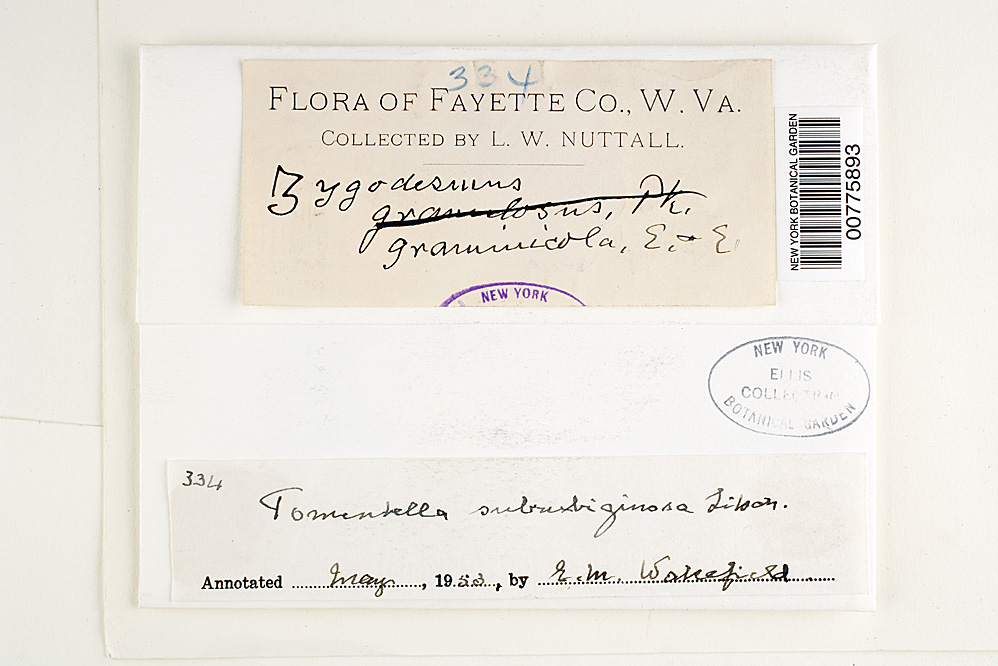 334
FLORA OF FAYETTE CO., W. VA.
COLLECTED BY L. W. NUTTALL.
Zygodesmus
granulosus, Pk.
graminicola, E. & E
NEW YORK
NEW YORK BOTANICAL GARDEN
00775893
NEW YORK
ELLIS
COLLECTION
BOTANICAL GARDEN
334
Tomentella subrubiginosa Litsch.
Annotated May, 1953, by E. M. Wakefield